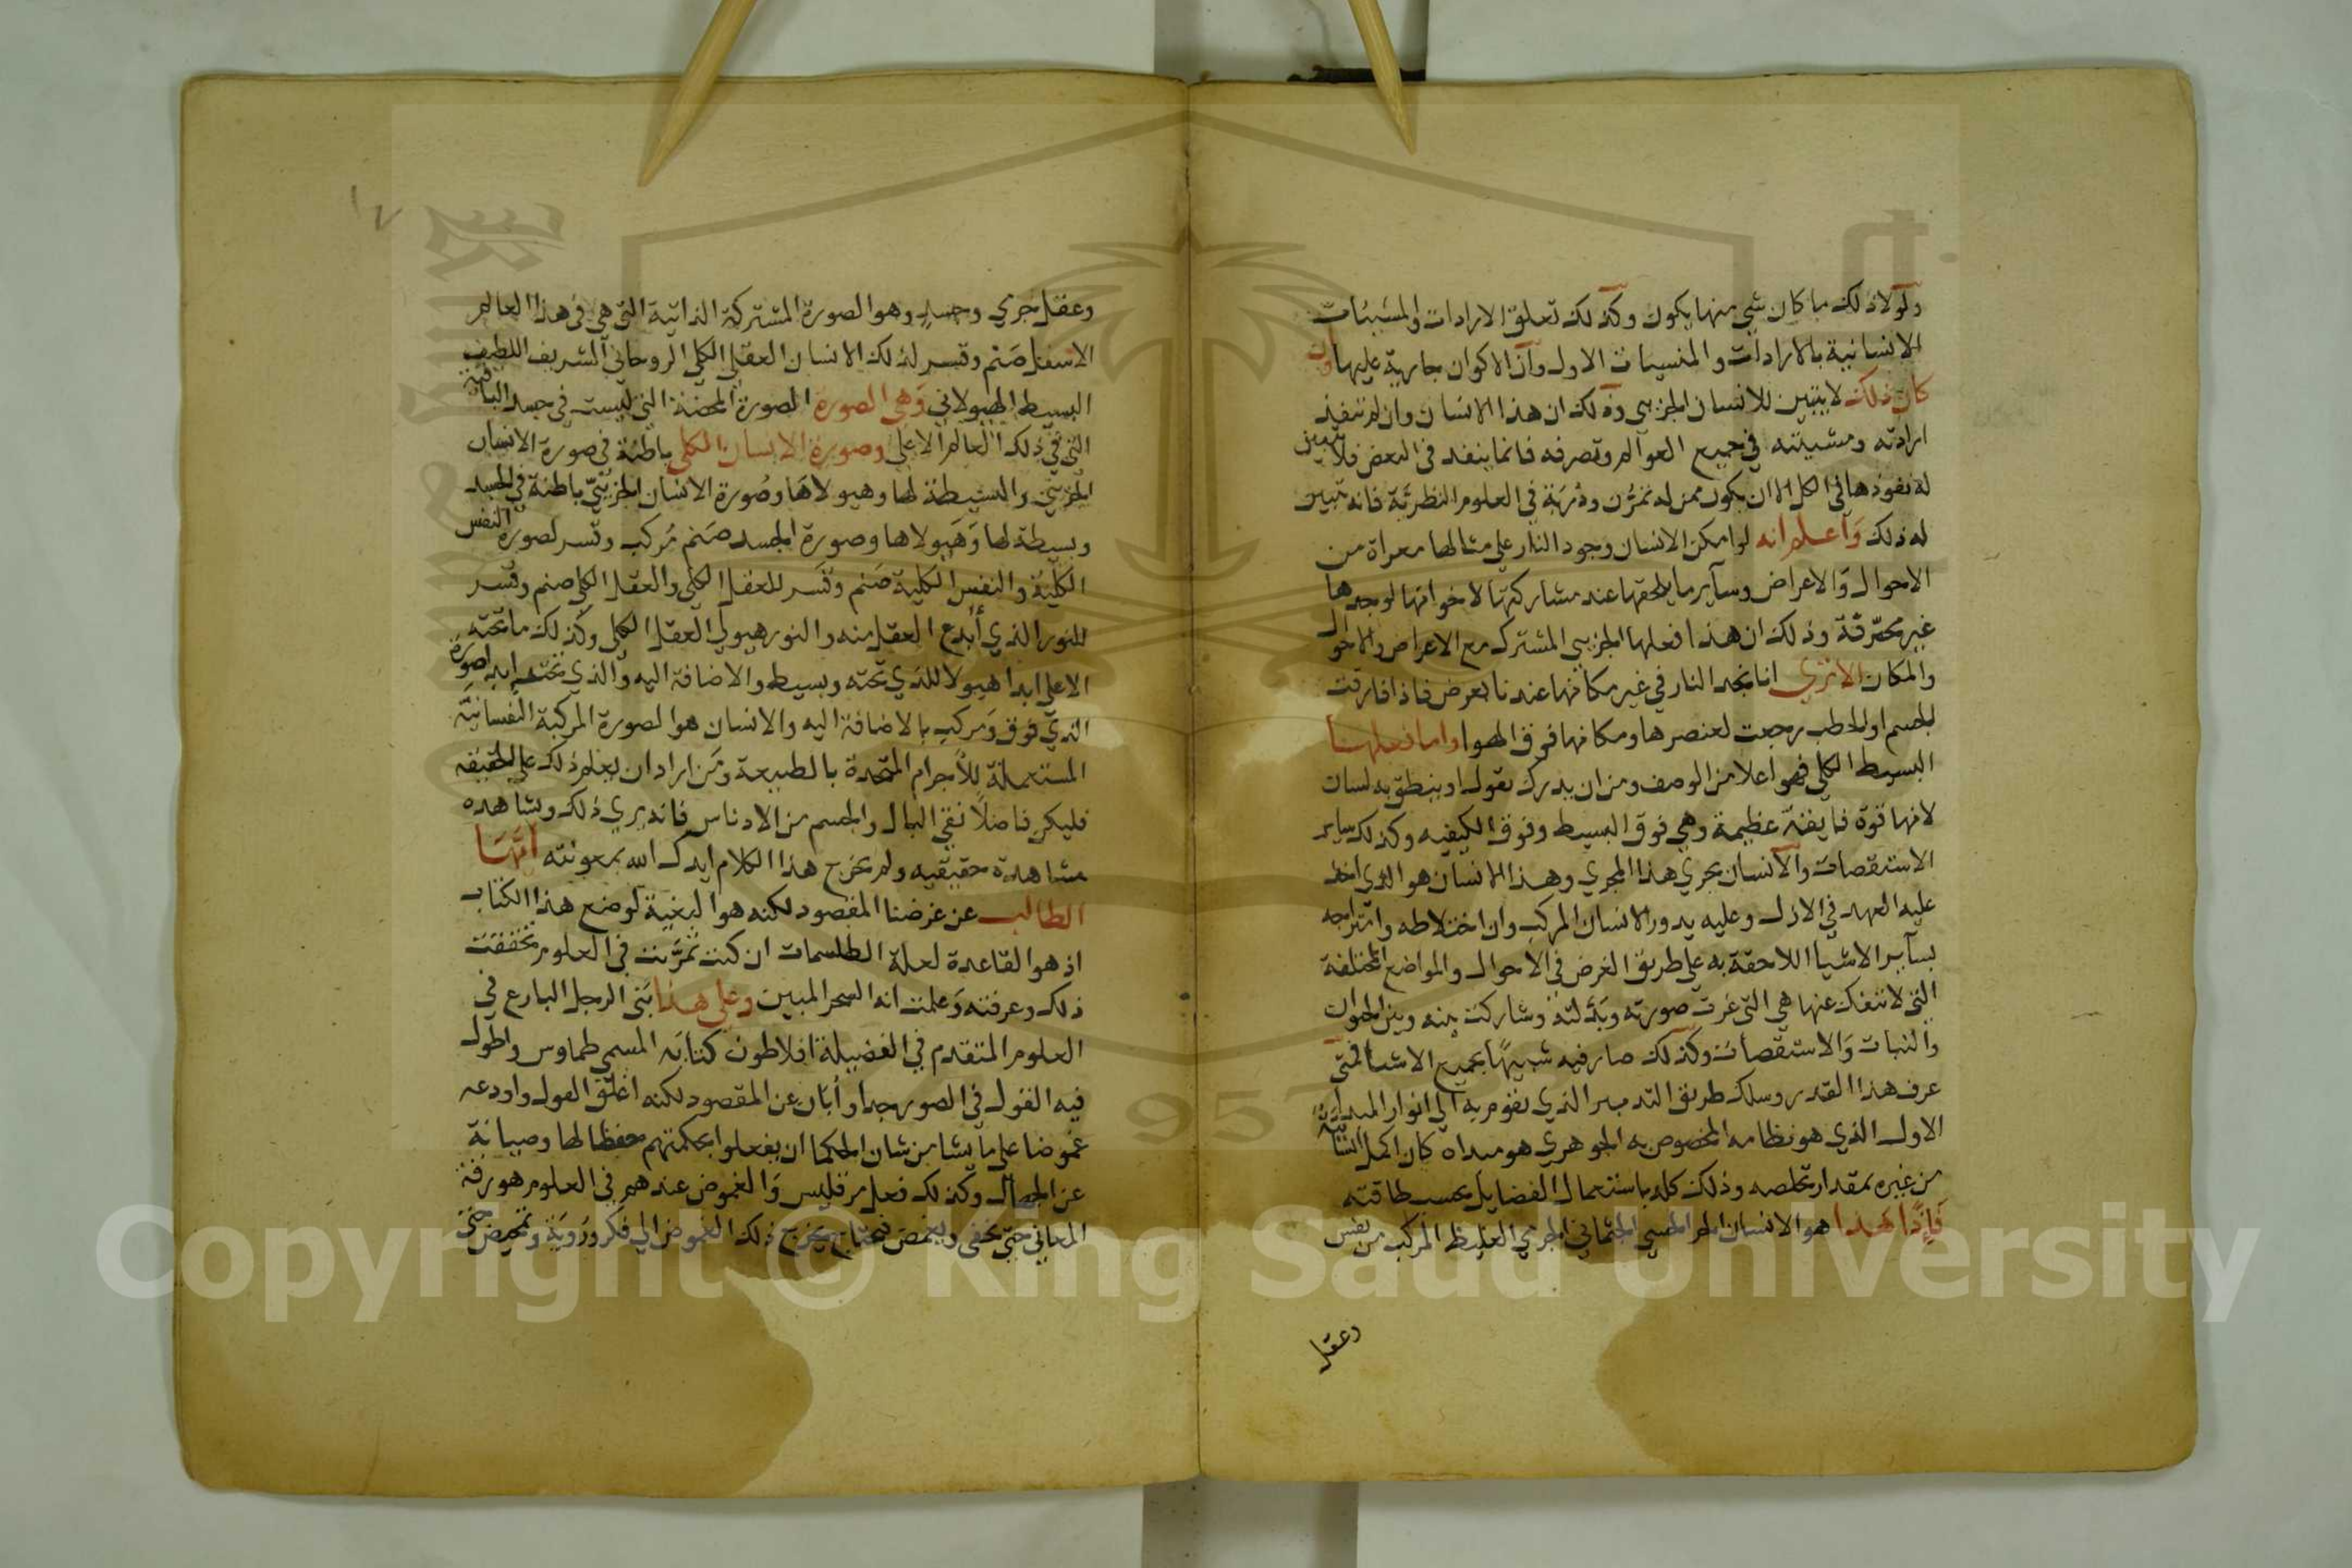 ولولا ذلك ما كان شي منها يكون وكذلك تعلق الارادات والمشيئات
الانسانية بالارادات والمشيات الاول وان الاكوان جارية عليها وان
كان ذلك لا يتبين للانسان الجزيى وذلك ان هذا الانسان وان لم تنفذ
ارادته ومشيته في جميع العوالم وتصرفه فانما ينفذ في البعض فلا يتبين
له نفوذها في الكل الا ان يكون ممن له تمرن ودربة في العلوم النظرية فانه تبين
له ذلك وَاعلم انه لو امكن الانسان وجود النار على مثالها معراة من
الاحوال وَالاعراض وسآير ما يلحقها عند مشاركتها لاخواتها لوجدها
غير محرقة وذلك ان هذا فعلها الجزيى المشترك مع الاعراض والاحوال
والمكان الا ترى انا نجد النار في غير مكانها عندنا بعرض فاذا فارقت
الجسم او الحطب رجعت لعنصرها ومكانها فوق الهوا واما فعلها
البسيط الكلي فهو اعلا من الوصف ومن ان يدرك بقول او ينطق به لسان
لانها قوة فايقة عظيمة وهي فوق البسيط وفوق الكيفيه وكذلك ساير
الاستقصات والانسان يجري هذا المجري وهذا الانسان هو الذي اخذ
عليه العهد في الازل وعليه يدور الانسان المركب وان اختلاطه وامتزاجه
بسآير الاشيا اللاحقة به على طريق العرض في الاحوال والمواضع المختلفة
التي لا تنفك عنها هي التي غرت صورته وبَدلته وشاركت بينه وبين الحيوان
والنبات وَالاستقصات وكذلك صار فيه شبيهًا بجميع الاشيا فمتى
عرف هذا القدر وسلك طريق التدبير الذي يقوم به الي انوار المبدا
الاول الذي هو نظامه المخصوص به الجوهري هو مبداه كان اكمل
من غيره بمقدار تخلصه وذلك كله باستعمال الفضايل بحسب طاقته
فَإِذًا هَذا هو الانسان الحسي الجثماني الجرمي الغليظ المركب من نفس
وعقل
١٧
وعقل جزي وجسد وهو الصورة المشتركة الذاتية التي هي في هذا العالم
الاسفل صَنم وقسر لذلك الانسان العقلي الكلي الروحاني الشريف اللطيف
البسيط الهيولاني وَهي الصورة الصورة المحضة التي ليست في جسد الباقية
التي في ذلك العالم الاعلى وصورة الانسان الكلي باطنة في صورة الانسان
الجزيي والبسيطة لها وهيولاهَا وصُورة الانسان الجزييّ باطنة في الجسد
وبسيطة لها وَهَيولاها وصورة الجسد صَنم مُركب وقسر لصورة النفس
الكليَة والنفس الكلية صَنم وقسَر للعقل الكلي والعقل الكلي صنم وقسر
للنور الذي أبدع العقل منه والنور هيولي العقل الكلي وكذلك ما تحته
الاعلي ابدا هيولا للذي تحته وبسيط والاضافة اليه والذي تحته ابدا صورة
الذي فوق وَمركب بالاضافة اليه والانسان هو الصورة المركبة النفسانيَة
المستعملة للأجرام المتحدة بالطبيعة ومَن اراد ان يعلم ذلك على الحقيقه
فليكن فاضلًا نقي البال والجسم من الادناس فانه يري ذلك ويشاهده
مشاهدة حقيقيه ولم يخرج هذا الكلام ايدك الله بمعونته ايّهَا
الطالب عن غرضنا المقصود لكنه هو البغية لوضع هذا الكتاب
اذ هو القاعدة لعلة الطلسمات ان كنت تمرَّنت في العلوم تحققت
ذلك وعرفته وَعلمت انه السحر المبين وعلى هذا بَنى الرجل البارع في
العلوم المتقدم في الفضيلة افلاطون كتابَه المسمي طماوس واطول
فيه القول في الصور جدا وأبَان عن المقصود لكنه اغلق القول واودعه
غموضا على ما يشا من شان الحكما ان يفعلوا بحكمتهم حفظا لها وصيانة
عن الجهال وكذلك فعل مرقليس وَالغموض عندهم في العلوم هو رقة
المعاني حتي تخفى ويغمض فيحتاج يخرج ذلك الغموض الي فكر ورَويَة وتمحيص حتى
Copyright © King Saud University